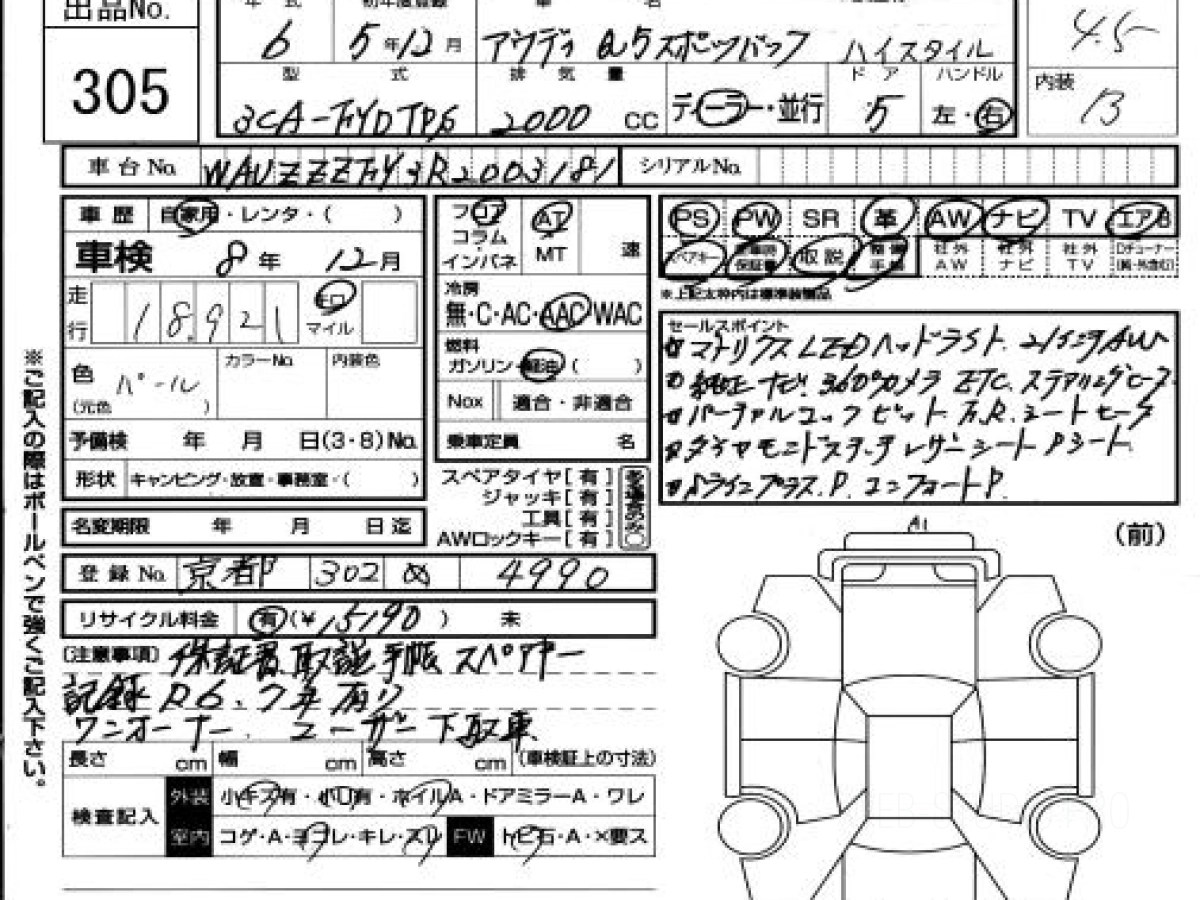 出品No.
305
年 式 初年度登録 車 名
6 5年12月 アウディ Q5スポーツバック ハイスタイル
4.5
型 式 排 気 量 ド ア ハンドル
3CA-FYDTPS 2000 CC ディーラー・並行 5 左・右
内装 B
車台No. WAUZZZFY3R2003181 シリアルNo.
車 歴 自家用・レンタ・( )
車検 8年 12月
走行 18,921 キロ マイル
色 パール (元色 ) カラーNo. 内装色
予備検 年 月 日(3・8)No.
形状 キャンピング・放宣・事務室・( )
名変期限 年 月 日迄
フロア コラム・インパネ AT MT 速
冷房
無・C・AC・AAC・WAC
燃料
ガソリン・軽油・( )
Nox 適合・非適合
乗車定員 名
スペアタイヤ[ 有 ]
ジャッキ[ 有 ]
工具[ 有 ]
AWロックキー[ 有 ]
PS PW SR 革 AW ナビ TV エアB
スペアキー 新車時保証書 取説 整備手帳 社外AW 社外ナビ 社外TV
※上記太枠内は標準装備品
セールスポイント
マトリクスLEDヘッドライト. 21インチAW
純正ナビ. 360°カメラ ETC. ステアリングヒータ
バーチャルコックピット F.R.シートヒータ
ダイヤモンドステッチレザーシート Pシート.
Sラインプラス.P. コンフォートP.
登録No. 京都 302 4990
リサイクル料金 有(¥15190 ) 未
[注意事項] 保証書 取説 手帳 スペアキー
記録 R6.7年有り
ワンオーナー. ユーザー下取車
長さ cm 幅 cm 高さ cm (車検証上の寸法)
検査記入 外装 小キズ有・小凹有・ホイルA・ドアミラーA・ワレ
室内 コゲ・A・ヨゴレ・キレ・スレ FW トビ石・A・×要ス
A1
(前)
※ご記入の際はボールペンで強くご記入下さい。